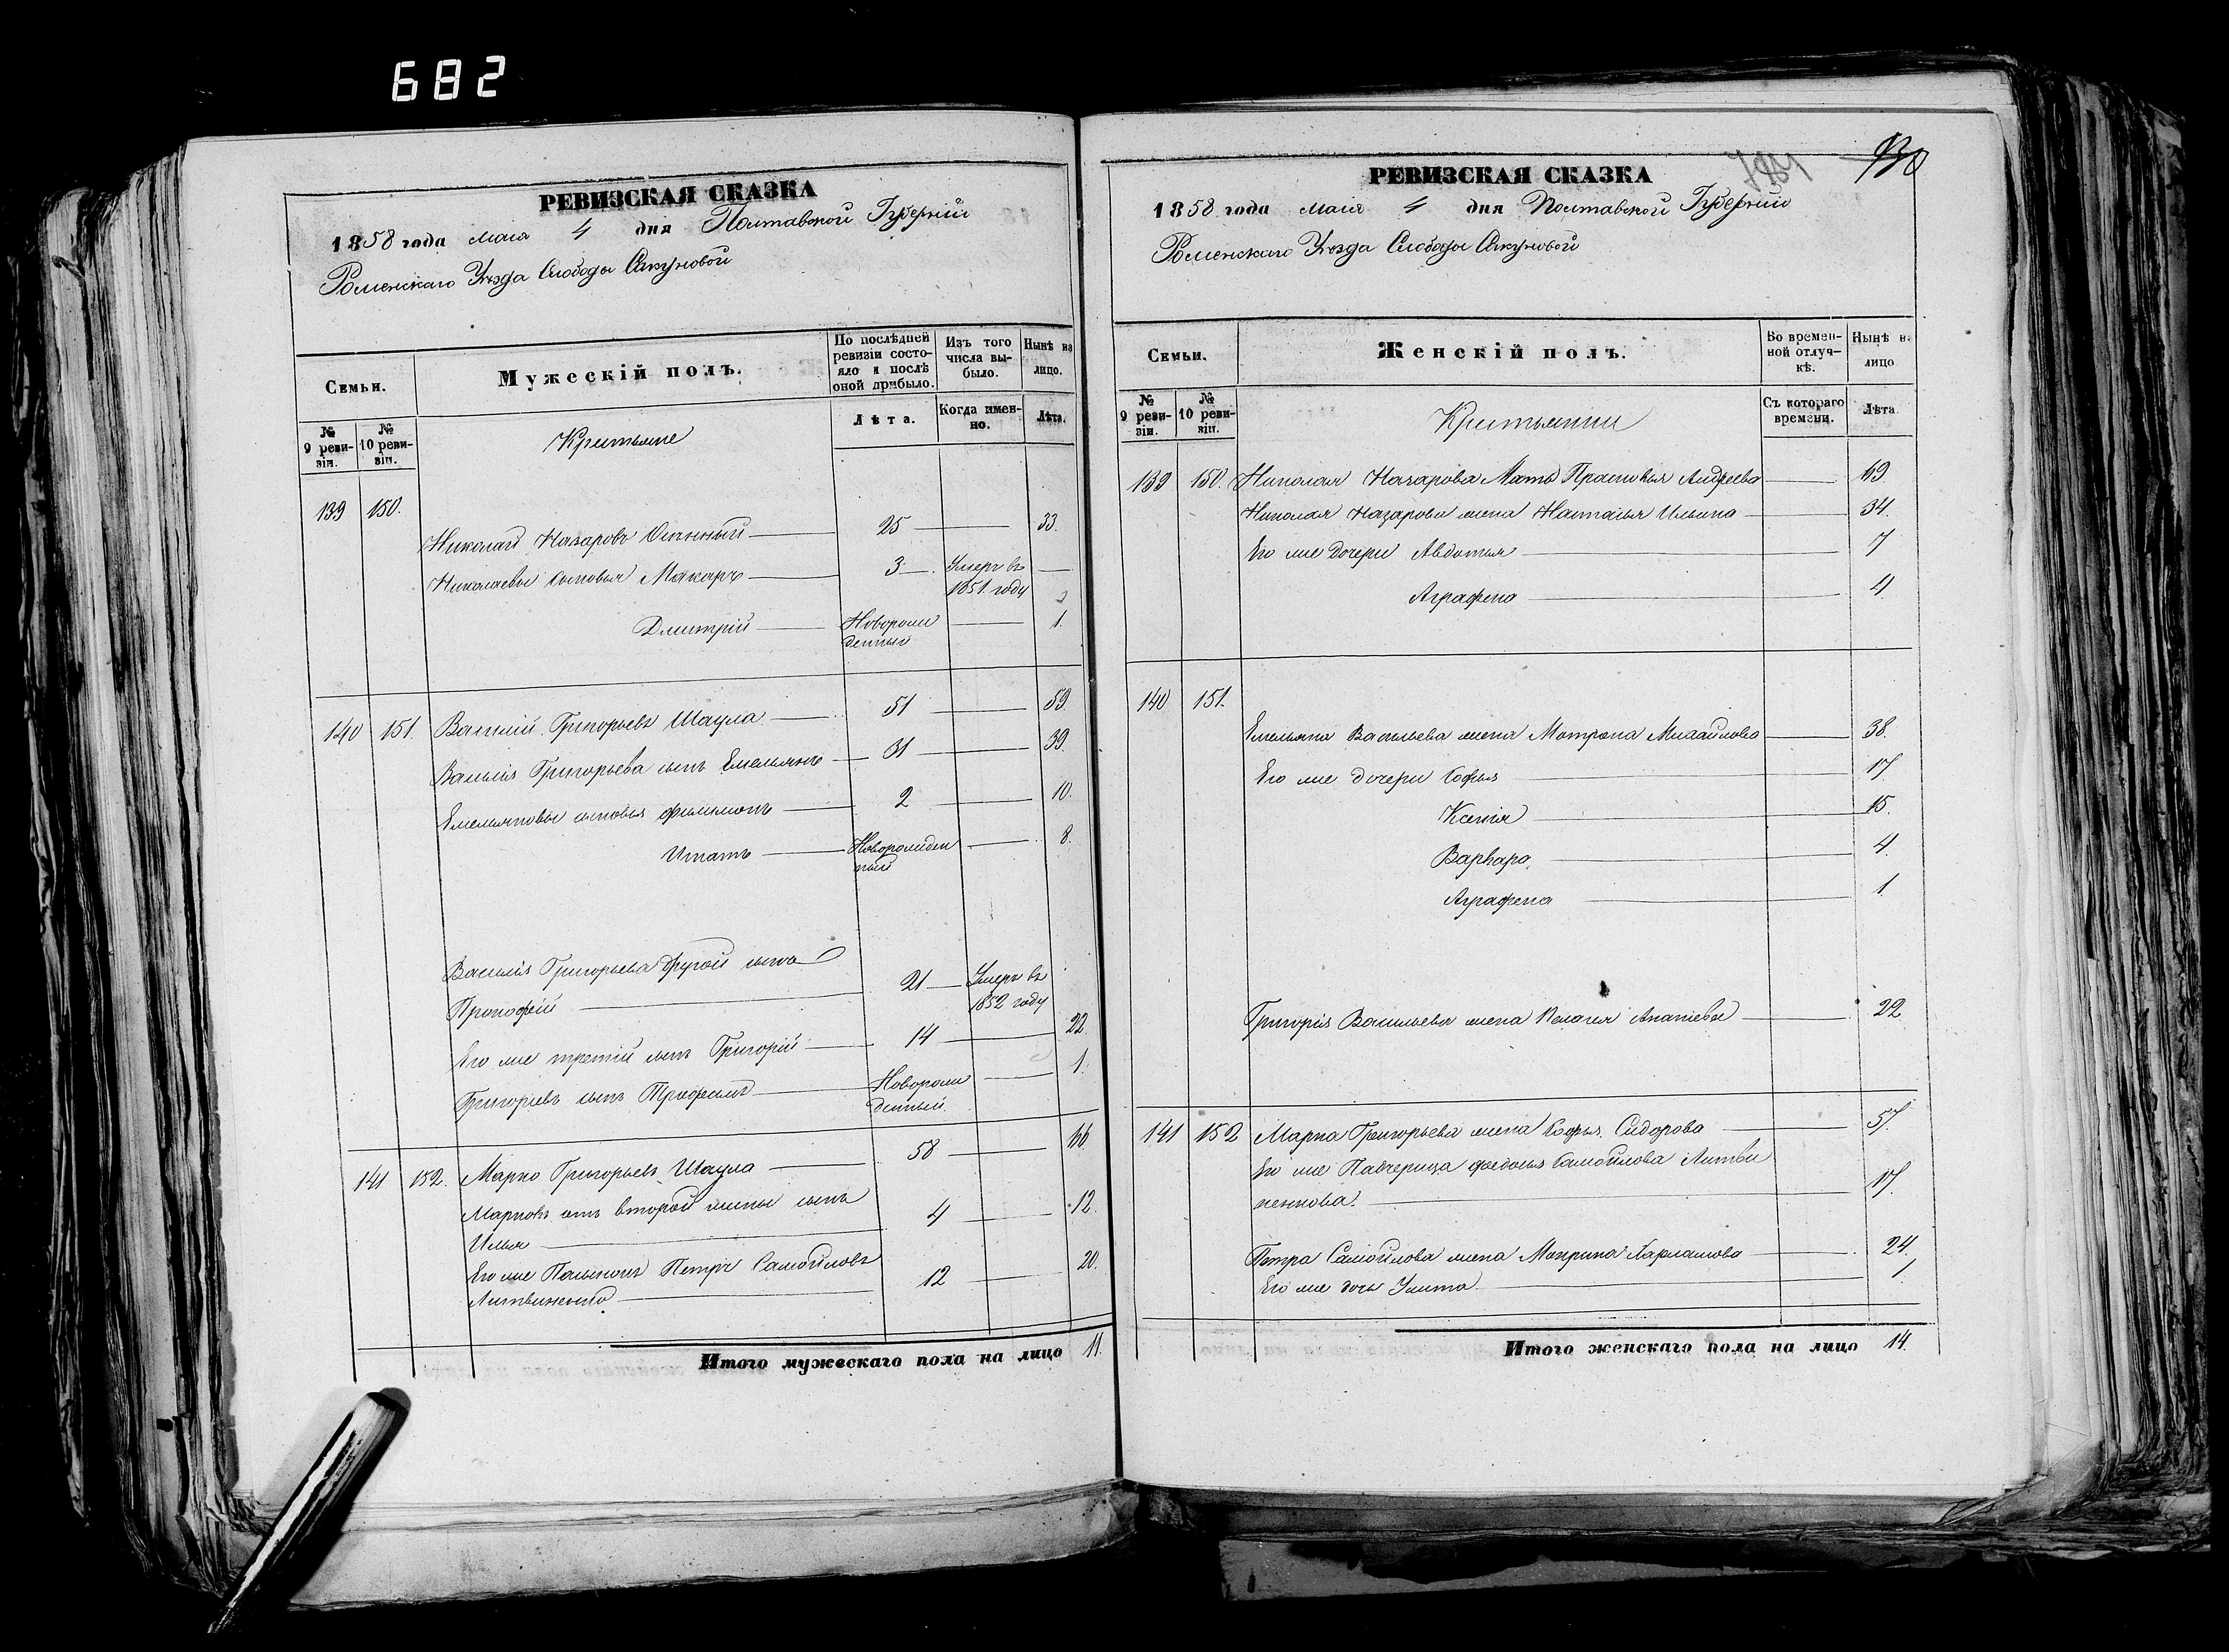 682
РЕВИЗСКАЯ СКАЗКА
1858 года маія 4 дня Полтавской Губерніи
Роменскаго Уѣзда Слободы
Семьи.
Мужескій полъ.
По послѣдней ревизіи состояло и послѣ оной прибыло.
Изъ того числа выбыло.
Нынѣ на лицо.
№ 9 ревизіи.
№ 10 ревизіи.
Крестьяне
Лѣта.
Когда именно.
Лѣта.
139 150.
Николай Назаровъ 25 33.
Николаевы сыновья Макаръ 3 Умеръ въ
1851 году
Дмитрій Новорож 1.
денный
140 151. Василій Григорьевъ Шаула 51 59.
Василія Григорьева сынъ Емельянъ 31 39.
Емельяновы сыновья Филимонъ 2 10.
Игнатъ Новорожден 8.
ный
Василія Григорьева другой сынъ
Прокофій 21 Умеръ въ
1852 году
Его же третій сынъ Григорій 14 22.
Григорьевъ сынъ Трофимъ Новорож 1.
денный
141 152. Марко Григорьевъ Шаула 58 66.
Марковъ отъ второй жены сынъ
Илья 4 12.
Его же Пасынокъ Петръ Самойловъ
Литвиненко 12 20.
Итого мужескаго пола на лицо 11.
РЕВИЗСКАЯ СКАЗКА
1858 года маія 4 дня Полтавской Губерніи
Роменскаго Уѣзда Слободы
Семьи.
Женскій полъ.
Во временной отлучкѣ.
Нынѣ на лицо
№ 9 ревизіи.
№ 10 ревизіи.
Крестьянки
Съ котораго времени.
Лѣта.
139 150. Николая Назарова Мать Прасковья Андреева 69.
Николая Назарова жена Наталья Ильина 34.
Его же дочери Авдотья 7
Аграфена 4.
140 151.
Емельяна Васильева жена Матрона Михайлова 38.
Его же дочери Софья 17
Ксенія 15.
Варвара 4.
Аграфена 1.
Григорія Васильева жена Пелагея Ананіева 22
141 152 Марка Григорьева жена Софья Сидорова 57.
Его же Падчерица Федосья Самойлова Литви
ненкова 17.
Петра Самойлова жена Варламова 24.
Его же дочь Улита 1.
Итого женскаго пола на лицо 14.